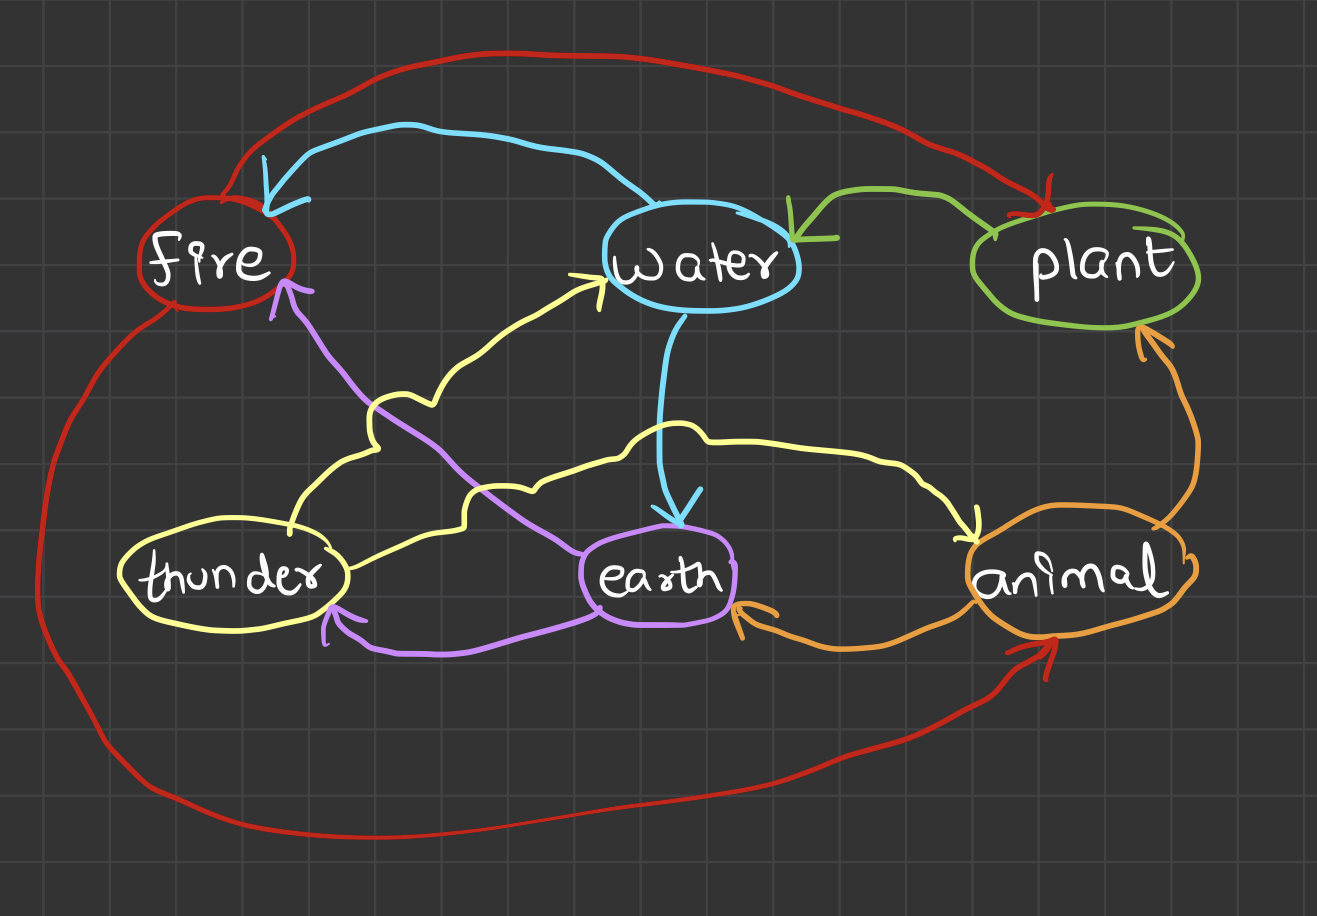 fire
water
plant
thunder
earth
animal